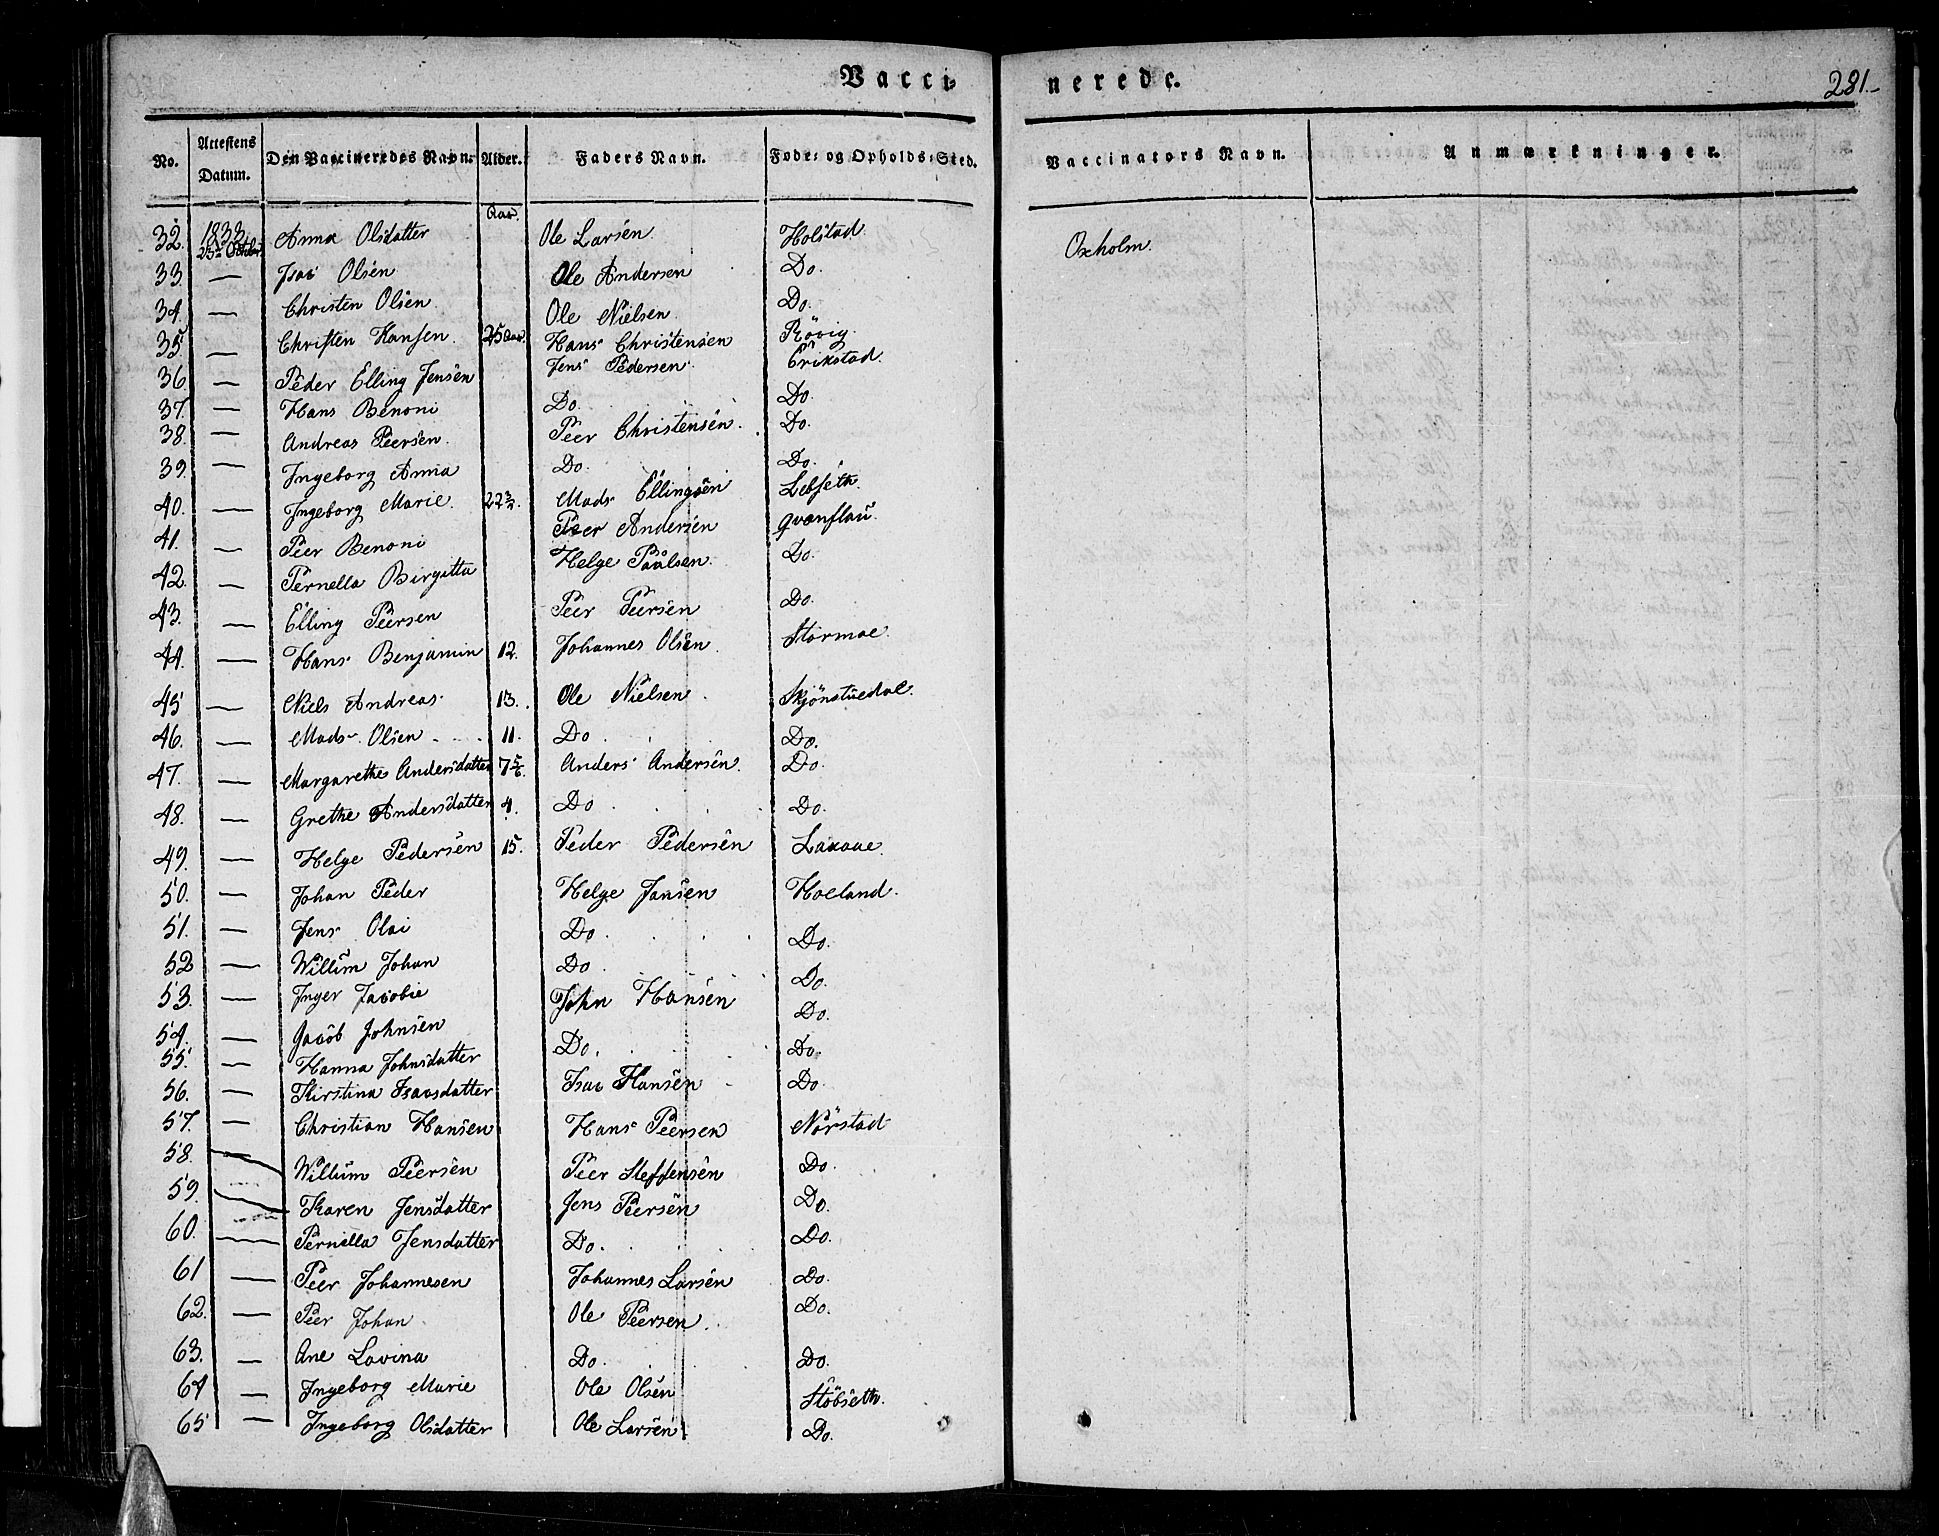 Vacci-
nerede.
281.
No.
Attestens Datum.
Den Vaccineredes Navn.
Alder.
Faders Navn.
Føde- og Opholds-Sted.
Vaccinators Navn.
Anmærkninger.
Aar.
32. 1833 23de Octbr Anna Olsdatter Ole Larsen Holstad. Oxholm.
33. — Isac Olsen Ole Andersen Do.
34. — Christen Olsen Ole Nielsen. Do.
35. — Christen Hansen. 25 Aar. Hans Christensen Rövig.
36. — Peder Elling Jensen Jens Pedersen. Erikstad.
37. — Hans Benoni Do. Do.
38. — Andreas Peersen. Peer Christensen. Do.
39. — Ingeborg Anna Do. Do.
40. — Ingeborg Marie. Mads Ellingsen Lebseth.
41. — Peer Benoni Peer Andersen Qvanflau.
42. — Pernella Birgitta Helge Paalsen. Do.
43. — Elling Peersen Peer Peersen Do.
44. — Hans Benjamin 12. Johannes Olsen. Stormoe.
45 — Niels Andreas 13. Ole Nielsen. Skjönstuedal.
46. — Mads Olsen 11. Do. Do.
47. — Margarethe Andersdatter 7 5/6. Anders Andersen. Do.
48. — Grethe Andersdatter 4. Do. Do.
49. — Helge Pedersen 15. Peder Pedersen Laxaae.
50. — Johan Peder Helge Jansen Hoeland.
51. — Jens Olai Do. Do.
52 — Willum Johan Do. Do.
53. — Inger Jacobie John Hansen Do.
54. — Jacob Johnsen Do. Do.
55. — Hanna Johnsdatter
56. — Kirstina Isacsdatter Isac Hansen Do.
57. — Christian Hansen Hans Peersen Nörstad
58. — Willum Peersen Peer Steffensen Do.
59. — Karen Jensdatter Jens Peersen Do.
60. — Pernella Jensdatter Do. Do.
61 — Peer Johannesen Johannes Larsen Do.
62. — Peer Johan Ole Peersen. Do.
63. — Ane Lovina Do. Do.
64 — Ingeborg Marie Ole Olsen Stöbseth.
65 — Ingeborg Olsdatter Ole Larsen Do.